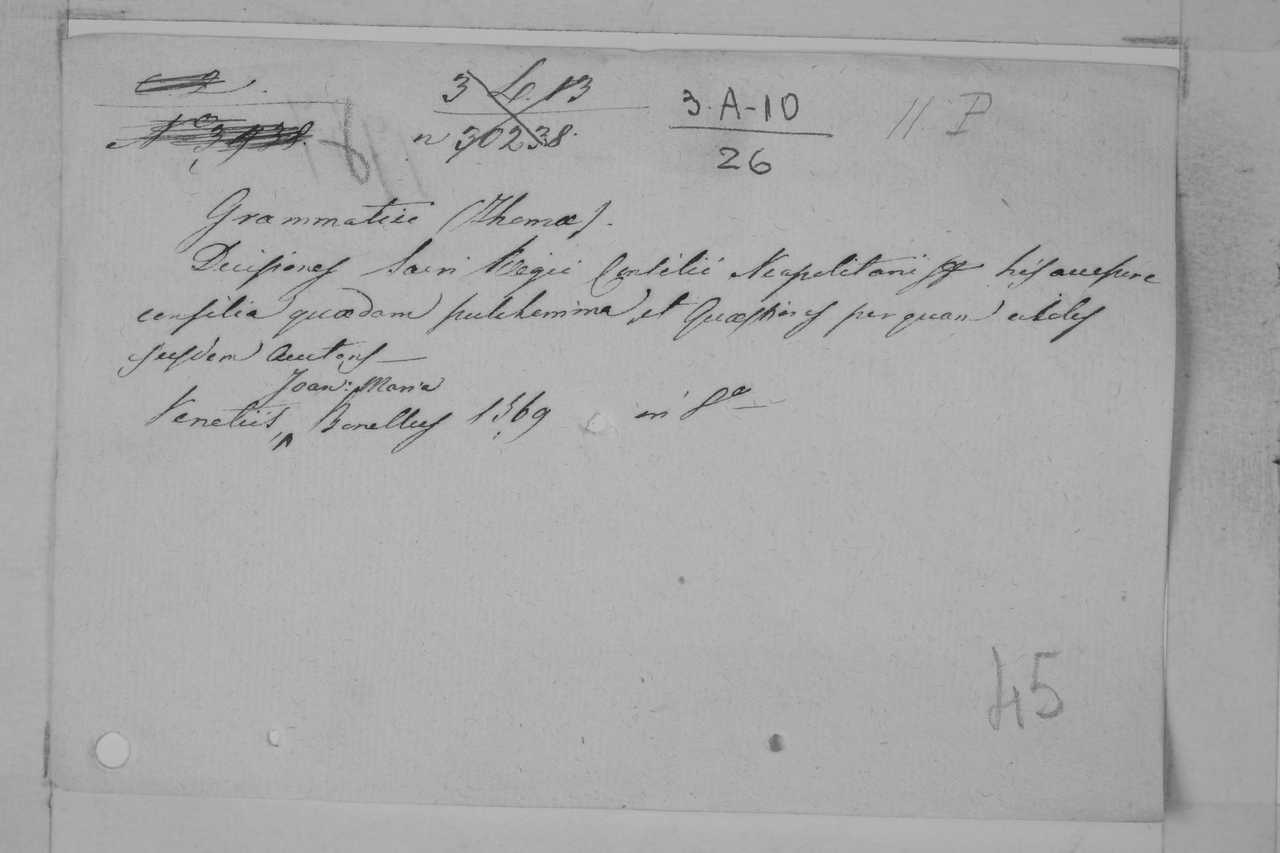 3 L. 13
n 30238.
3. A-10
26
11 P
Grammatici (Thomæ).
Decisiones Sacri Regii Consilii Neapolitani his accessere
consilia quædam pulcherrima, et Quæstiones per quam utiles
ejusdem Auctoris
Joan: Maria
Venetiis, Bonellus 1569 in 8º
45